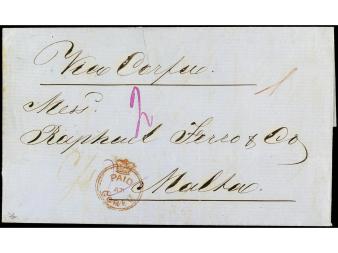 Via Corfu.
Mess.
2
1
Raphael Ferro & Co
PAID
Malta.